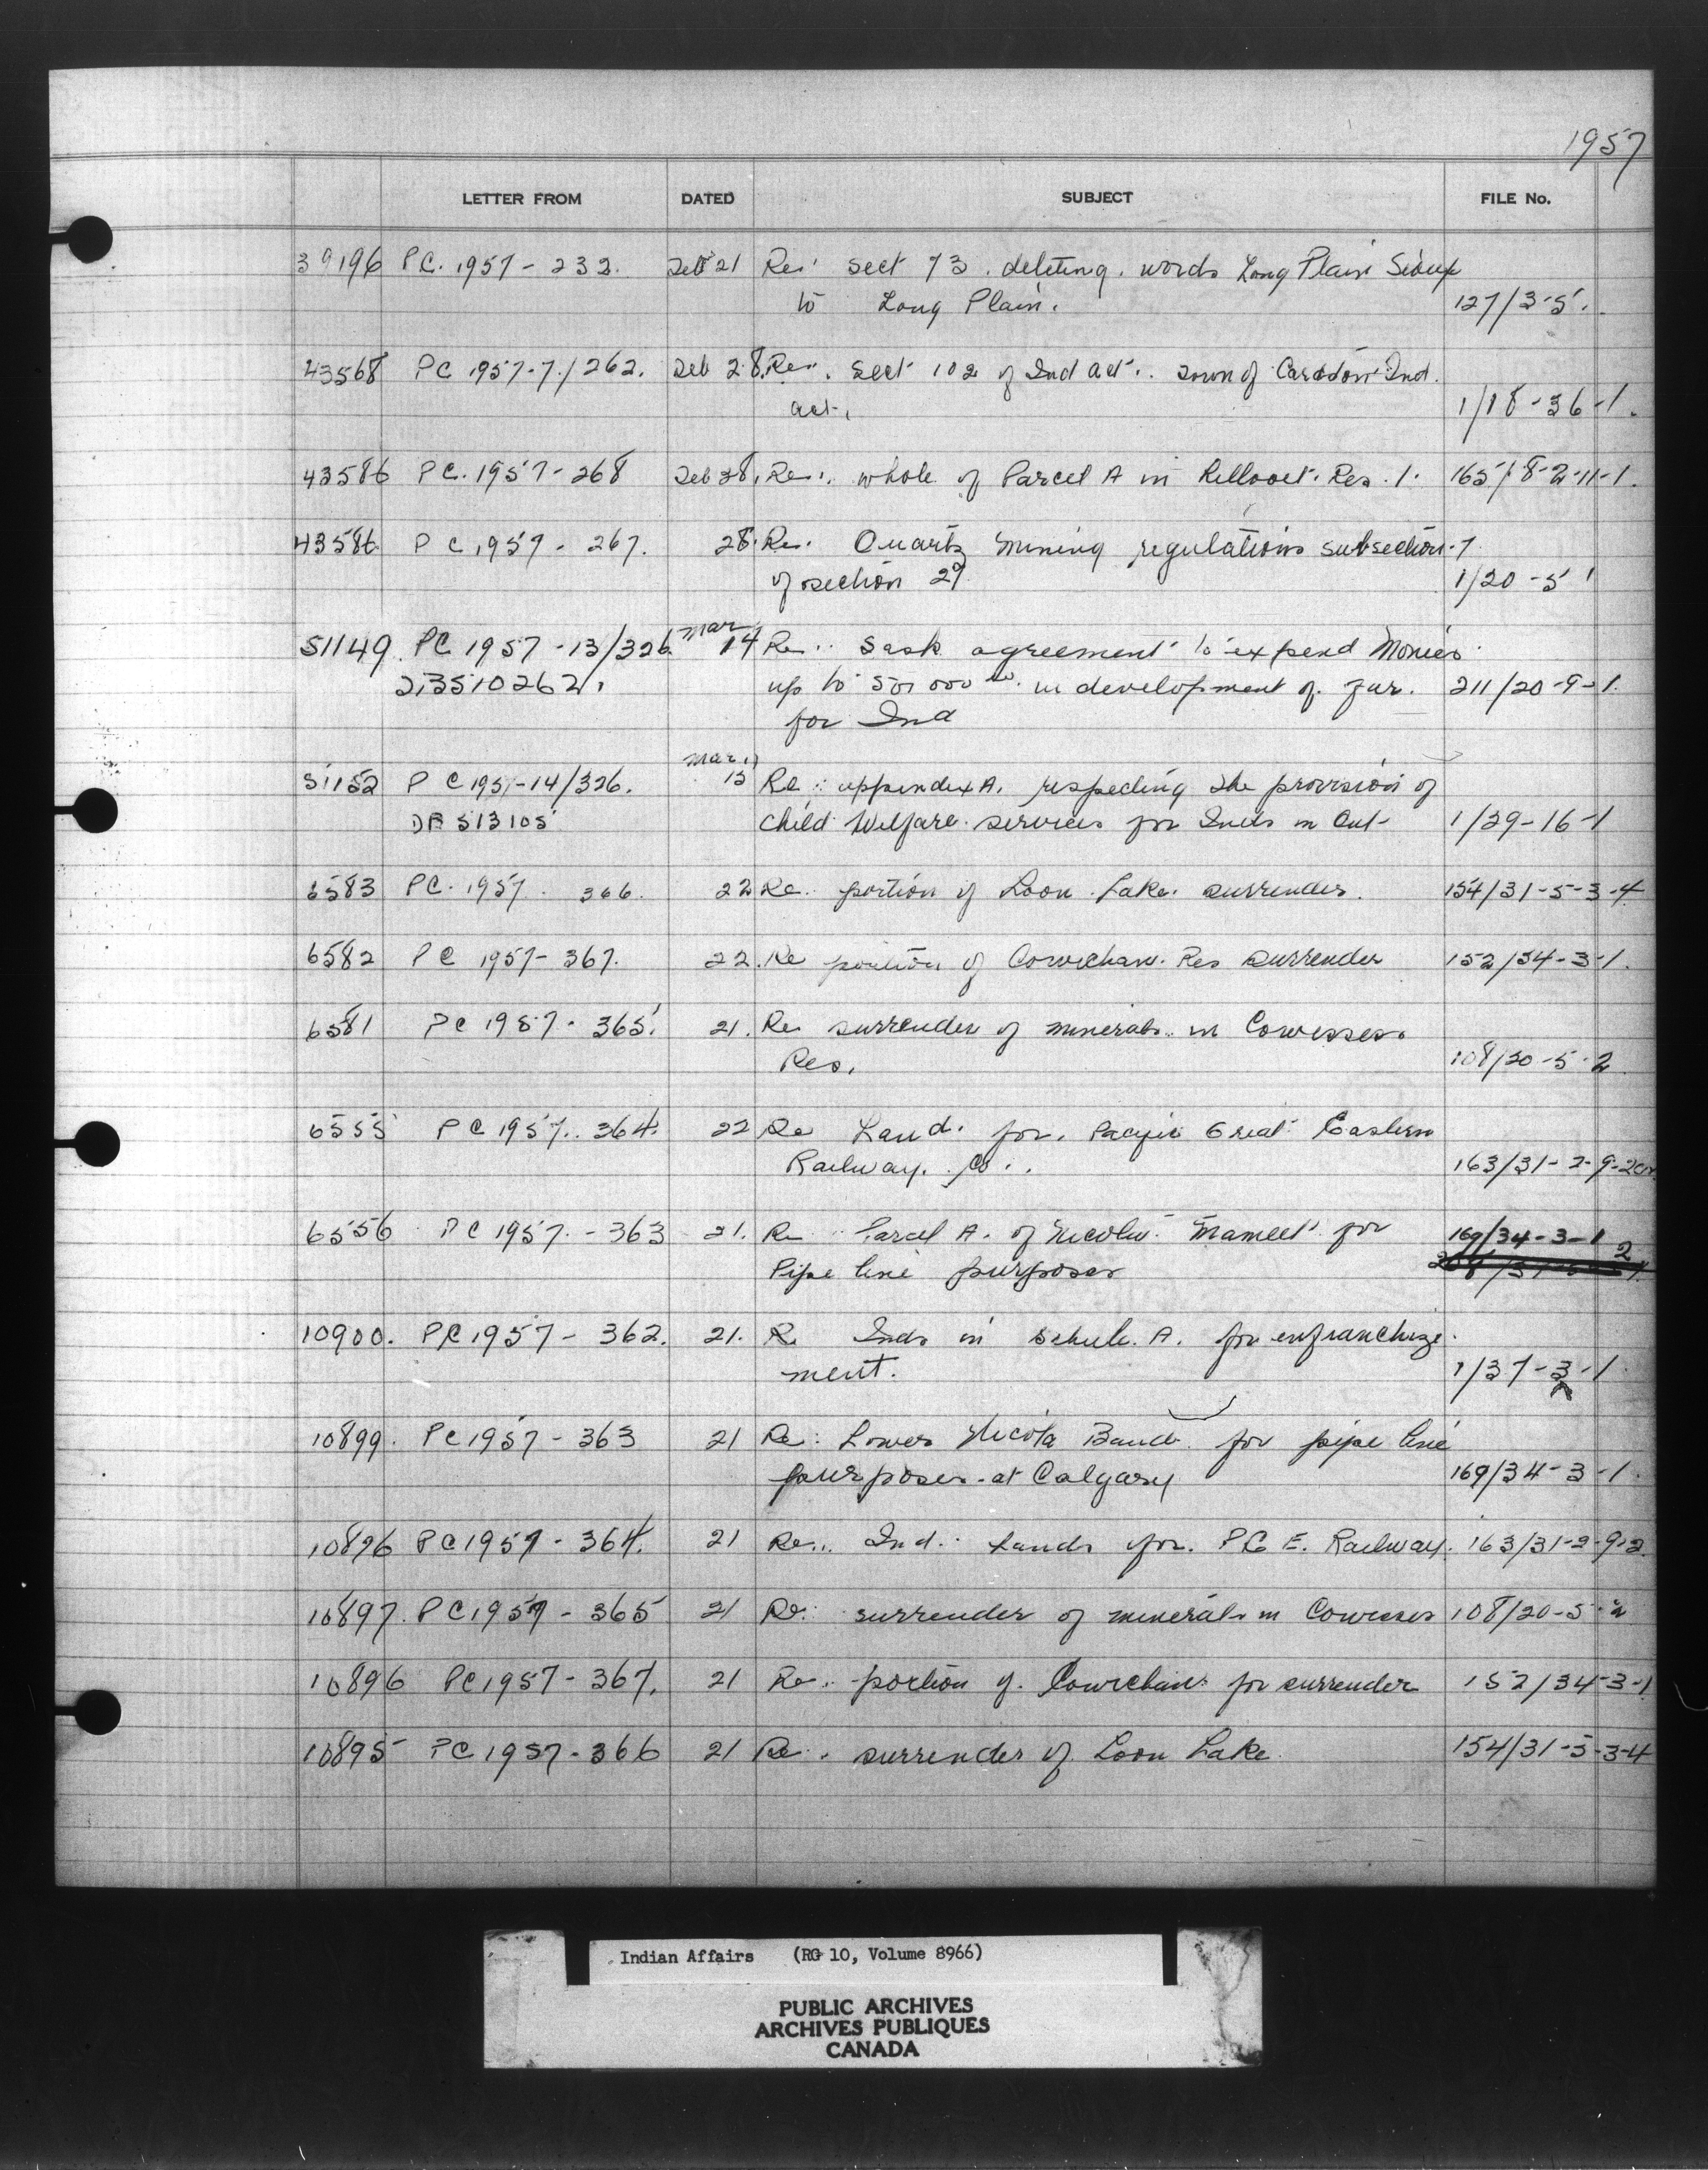 1957
LETTER FROM DATED SUBJECT FILE No.
39196 P.C. 1957 - 232. Feb 21 Re: sect 73. deleting. words Long Plain Sioux
to Long Plain. 127/3-5.
43568 PC 1957-7/262. Feb 28. Re: Sect 102 of Ind act. Town of Cardston Ind.
act. 1/18-36-1.
43586 PC. 1957-268 Feb 28. Re: whole of Parcel A in Res. 1. 165/8-2-11-1.
43586 P C 1957 - 267. 28. Re. Quartz mining regulations subsection 7
of section 29 1/20-5
51149. PC 1957-13/326. Mar 14 Re: Sask agreement to expend monies
213510262. up to in development of fur. 211/20-9-1.
for Ind
51152 P C 195 -14/326. Mar 15 Re: appendix A. respecting the provision of
513105 Child Welfare services for Inds in Ont- 1/29-16-1
6583 PC. 1957. 366. 22 Re: portion of Loon Lake. surrender. 154/31-5-3-4
6582 P C 1957-367. 22. Re portion of Cowichan. Res surrender 152/34-3-1.
6581 PC 1957-365. 21. Re surrender of minerals in Cowesses.
Res. 108/20-5-2
6555 PC 1957. 364. 22 Re Land. for. Pacific Great Eastern
Railway. Co. 163/31-2-9-2
6556 PC 1957.-363 21. Re Parcel A. of Mameet for 169/34-3-1
Pipe line purposes
10900. PC 1957 - 362. 21. Re Inds in schule. A. for enfranchize
ment. 1/37-3-1
10899. PC 1957 - 363 21 Re: Lower Nicola Band for pipe line
purposes-at Calgary 169/34-3-1.
10896 PC 1957 - 364. 21 Re: Ind. Lands for. P.G E. Railway. 163/31-2-9-2
10897. PC 1957 - 365 21 Re: surrender of minerals in Cowesses 108/20-5-2
10896 PC 1957-367. 21 Re: portion of. Cowichan for surrender 152/34-3-1
10895 PC 1957-366 21 Re: surrender of Loon Lake 154/31-5-3-4
Indian Affairs (RG 10, Volume 8966)
PUBLIC ARCHIVES
ARCHIVES PUBLIQUES
CANADA